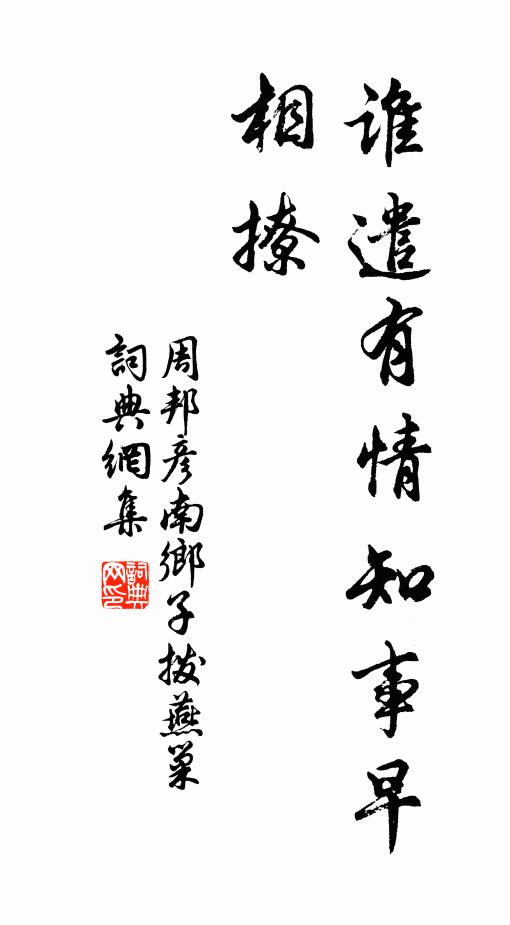 誰遣有情知事早
相撩
周邦彥南鄉子撥燕巢
詞典網集
詞典
网印